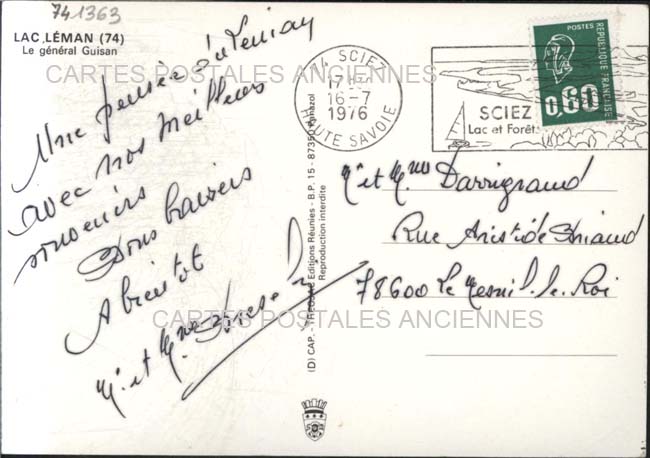 741363
LAC LÉMAN (74)
Le général Guisan
CARTES POSTALES ANCIENNES
Une pensée d'
avec nos meilleurs
souvenirs
Bons baisers
A bientôt
Mr et Mme
74 SCIEZ
17H
16-7
1976
HAUTE SAVOIE
SCIEZ
Lac et Forêt
POSTES
REPUBLIQUE FRANÇAISE
0,60
(D) CAP. - THEOJAC Editions Réunies - B.P. 15 - 87350 Panazol
Reproduction interdite
Mr et Mme Darrigrand
Rue Aristide Briand
78600 Le Mesnil-le-Roi
CARTES POSTALES ANCIENNES